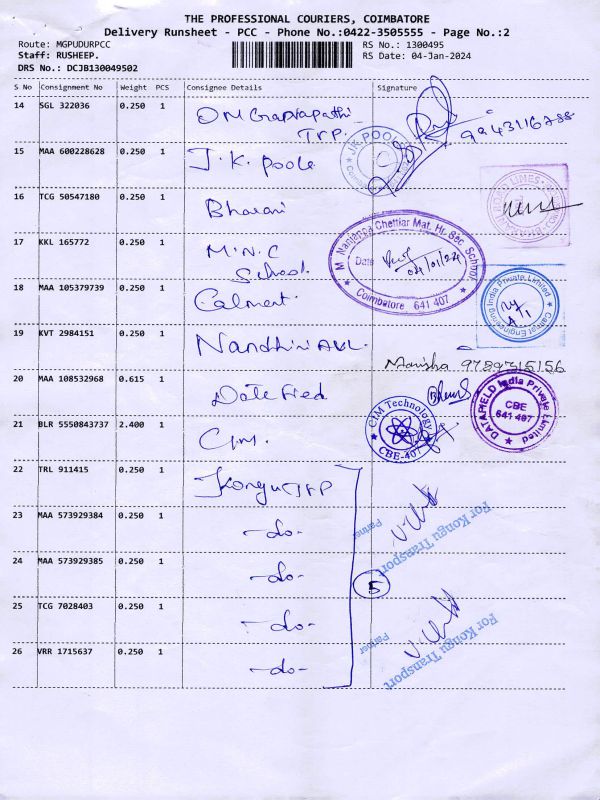 THE PROFESSIONAL COURIERS, COIMBATORE
Delivery Runsheet - PCC - Phone No.:0422-3505555 - Page No.:2
Route: MGPUDURPCC
Staff: RUSHEEP.
DRS No.: DCJB130049502
RS No.: 1300495
RS Date: 04-Jan-2024
S No Consignment No Weight PCS Consignee Details Signature
14 SGL 322036 0.250 1 OM Ganapathi
9943116788
15 MAA 600228628 0.250 1 J.K. Poole
JK POOLE
16 TCG 50547180 0.250 1 Bharani
17 KKL 165772 0.250 1 M.N.C
School
M. Nanjappa Chettiar Mat. Hr. Sec. School
Date 04/01/24
Coimbatore 641 407
18 MAA 105379739 0.250 1 Calment.
Engineering India Private Limited
19 KVT 2984151 0.250 1 Nandhini
Manisha 9789715156
20 MAA 108532968 0.615 1 Datefied
DATAFIELD India Private Limited
CBE
641 407
21 BLR 5550843737 2.400 1 Cim.
CIM Technology
CBE-407
22 TRL 911415 0.250 1 Kongu
23 MAA 573929384 0.250 1 -do-
For Kongu Transport
Partner
24 MAA 573929385 0.250 1 -do-
5
25 TCG 7028403 0.250 1 -do-
For Kongu Transport
Partner
26 VRR 1715637 0.250 1 -do-